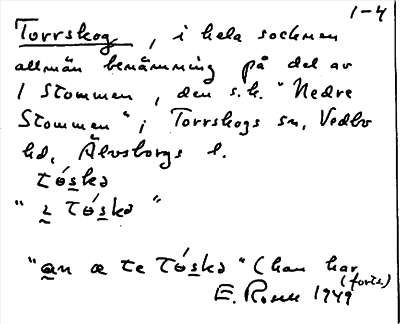 1-4
Torrskog, i hela socknen
allmän benämning på del av
1 Stommen, den s.k. "Nedre
Stommen" i Torrskogs sn, Vedbo
hd, Älvsborgs l.
tóskə
"ı tóskə"
"an æ te tóskə" (han har
(forts.)
E. Rosen 1949